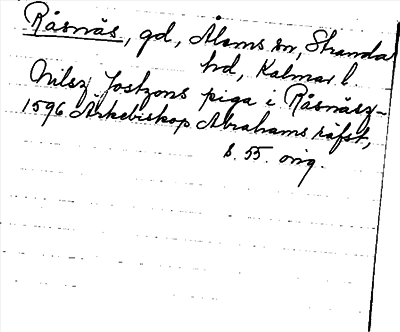 Råsnäs, gd, Ålems sn, Stranda
hd, Kalmar l.
Nilsz Jostzons piga i Råsnäsz -
1596 Ärkebiskop Abrahams räfst,
s. 55. orig.